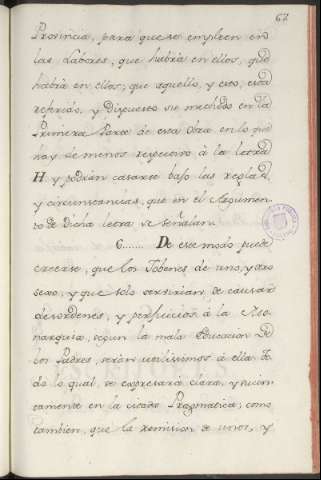 67
Provincia, para que se empleen en
las Labores, que habrá en ellos, que
habrá en ellos; que aquello, y esto, está
referido, y dispuesto su methodo en la
Primera Parte de esta Obra en lo que
hay de menos respectivo à la letra
H y podrán casarse bajo las reglas,
y circunstancias, que en el Argumen-
to de dicha letra se señalan.
6...... De este modo puede
creerse, que los Jobenes de uno, y otro
sexo, y que solo servirian de causar
desordenes, y perjuicios à la Mo-
narquia, segun la mala educacion de
los Padres, serán utilisimos à ella. To-
do lo qual, se expresará clara, y sucin-
tamente en la citada Pragmatica; como
tambien, que la remision de unos, y